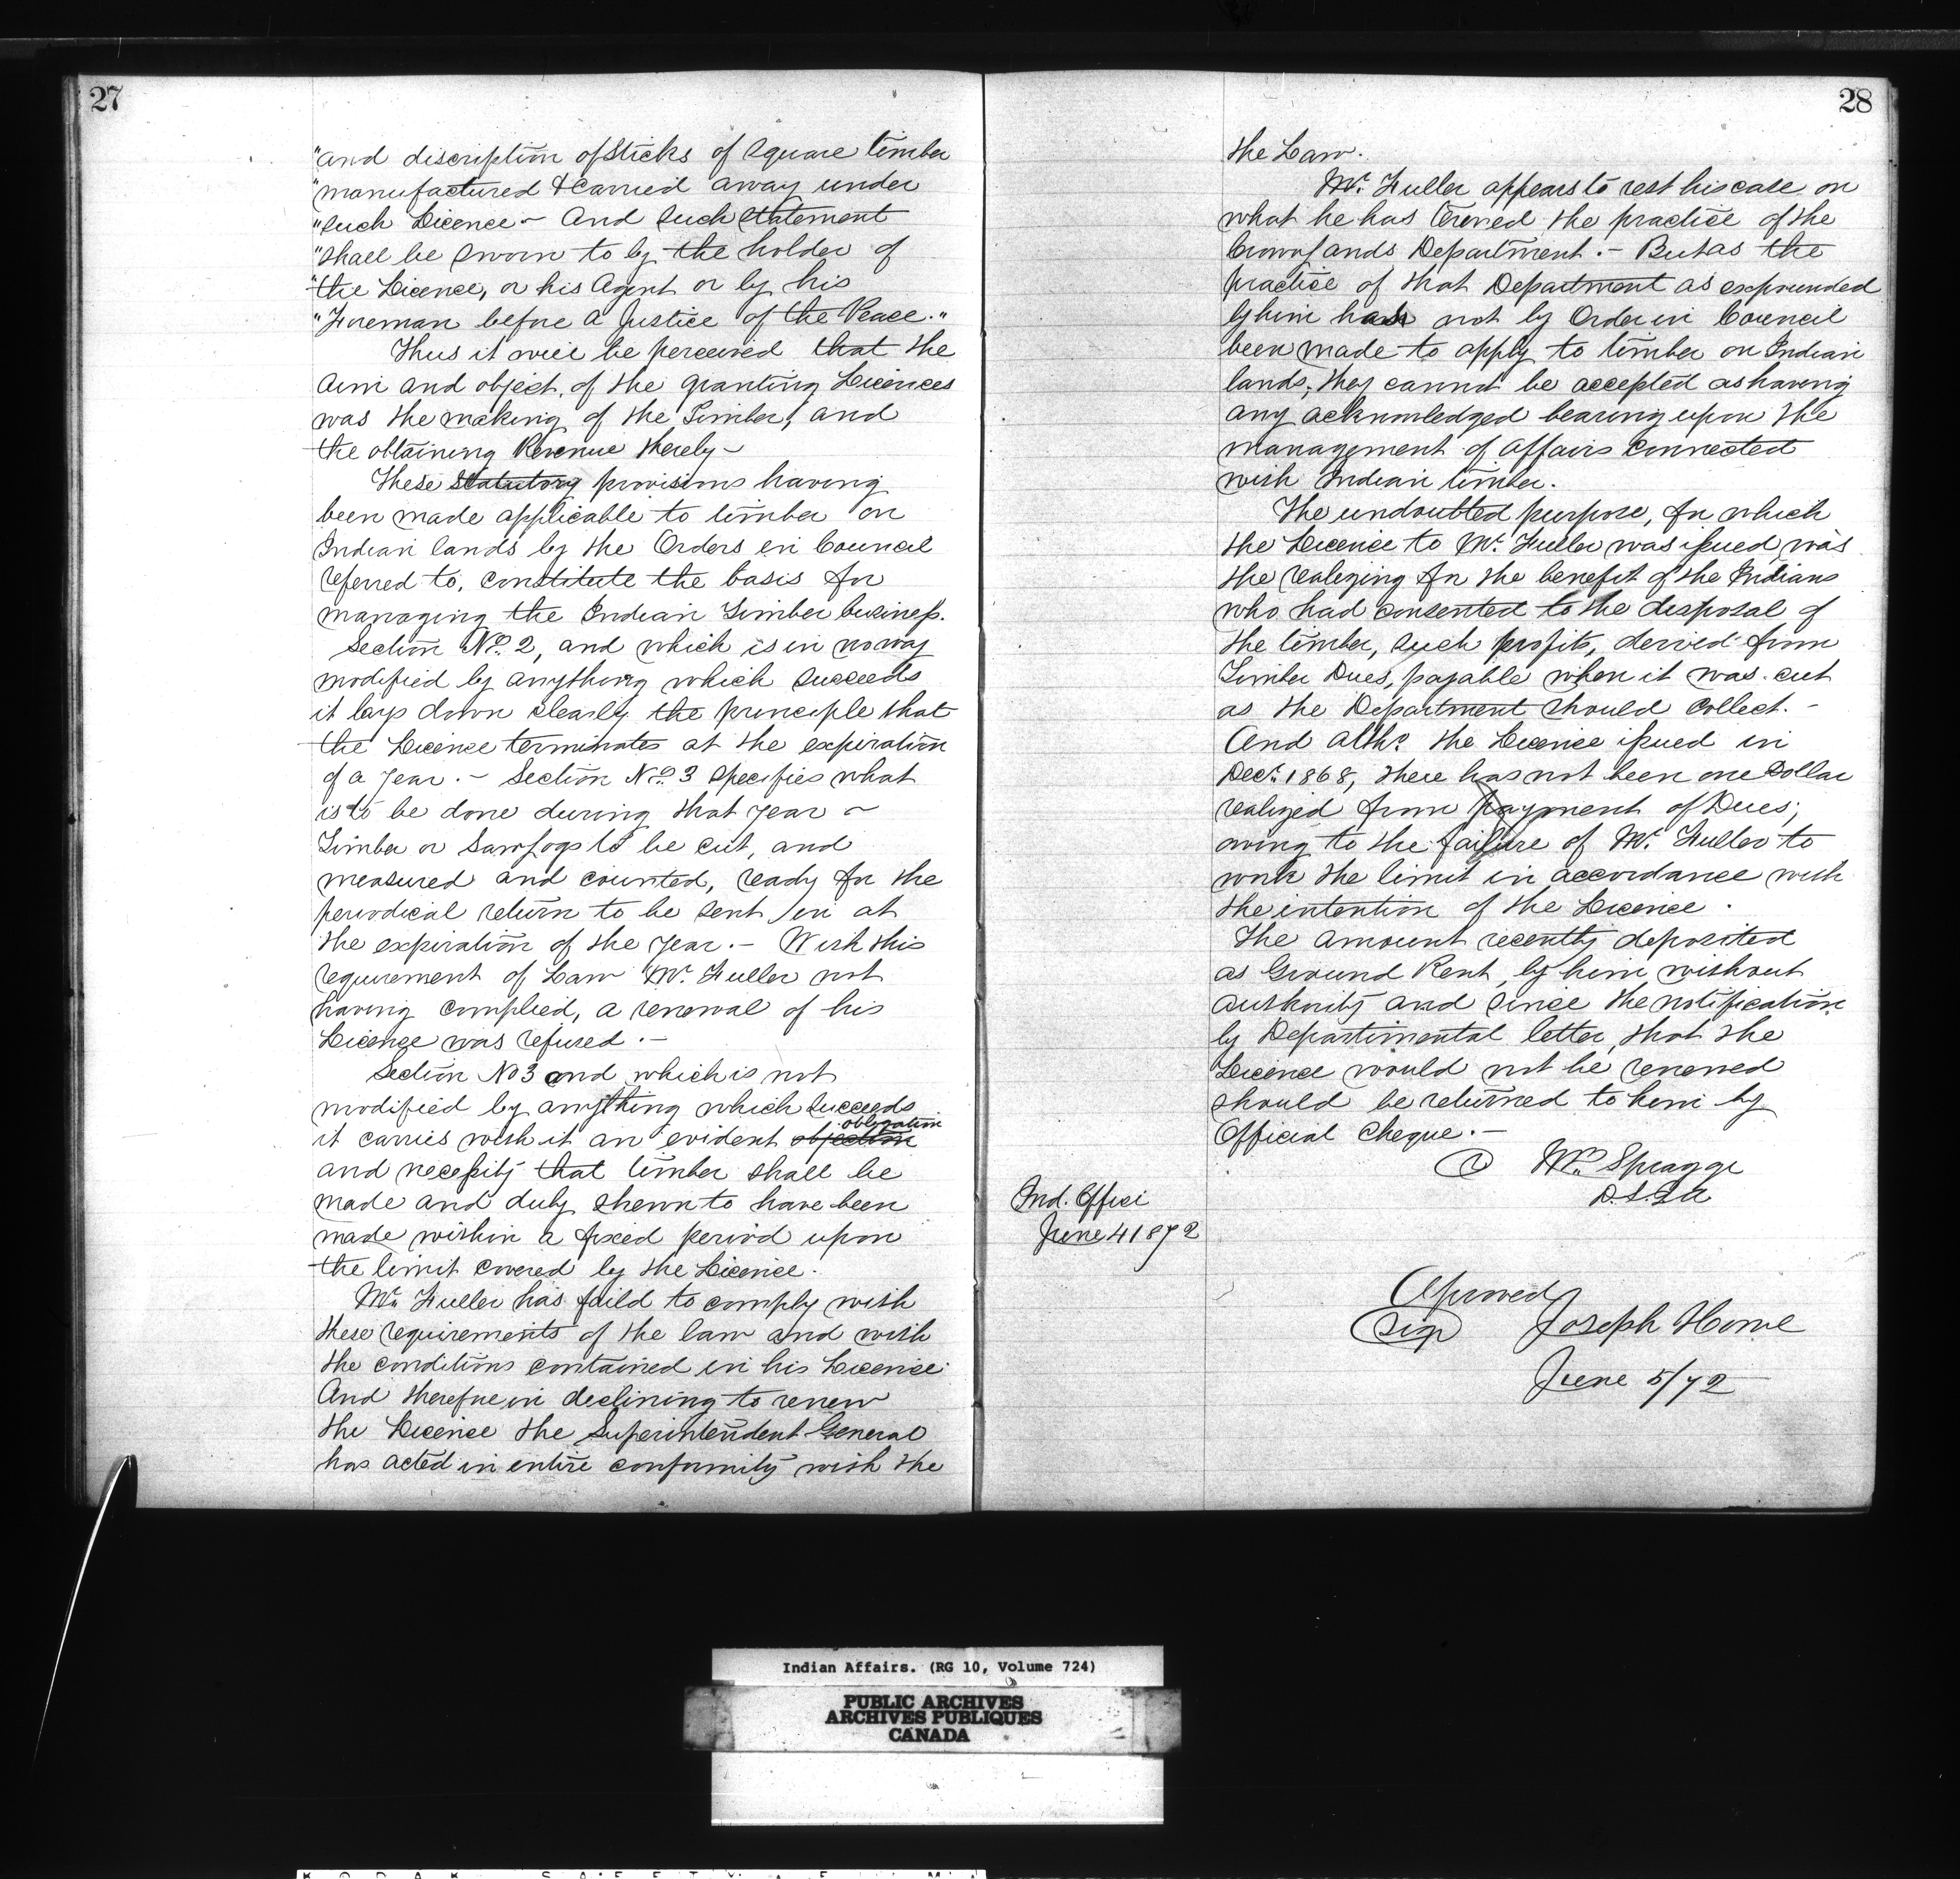 27
"and discription of Sticks of Square timber
"manufactured & Carried away under
"such Licence - And such statement
"shall be sworn to by the holder of
"the Licence, or his Agent or by his
"Foreman before a Justice of the Peace."
Thus it will be perceived that the
aim and object, of the granting Licences
was the making of the Timber, and
the obtaining Revenue thereby -
These statutory provisions having
been made applicable to timber on
Indian lands by the Orders in Council
referred to, constitute the basis for
managing the Indian Timber business.
Section No. 2, and which is in no way
modified by anything which succeeds
it lays down clearly the principle that
the Licence terminates at the expiration
of a year. - Section No. 3 specifies what
is to be done during that year -
Timber or Saw logs to be cut, and
measured and counted, ready for the
periodical return to be sent in at
the expiration of the year. - With this
requirement of Law Mr. Fuller not
having complied, a renewal of his
License was refused. -
Section No 3 and which is not
modified by anything which succeeds
obligation
it carries with it an evident objection
and necessity that timber shall be
made and duly shewn to have been
made within a fixed period upon
the limit covered by the Licence.
Mr. Fuller has faild to comply with
these requirements of the law and with
the conditions contained in his Licence.
And therefore in declining to renew
the Licence the Superintendent General
has acted in entire conformity with the
28
the Law.
Mr. Fuller appears to rest his case on
what he has termed the practice of the
Crown Lands Department. - But as the
practice of that Department as expounded
by him has not by Order in Council
been made to apply to timber on Indian
lands, they cannot be accepted as having
any acknowledged bearing upon the
management of affairs connected
with Indian timber.
The undoubted purpose, for which
the Licence to Mr. Fuller was issued, was
the realizing for the benefit of the Indians
who had consented to the disposal of
the timber, such profits, derived from
Timber Dues, payable when it was cut
as the Department should collect. -
And altho the Licence issued in
Decr. 1868, there has not been one Dollar
realized from payment of Dues;
owing to the failure of Mr. Fuller to
work the limit in accordance with
the intention of the Licence.
The amount recently deposited
as Ground Rent, by him without
authority and since the notification
by Departimental letter, that the
Licence would not be renewed
should be returned to him by
Official Cheque. -
Wm. Spragge
D.S.I.A
Ind. Office
June 4 1872
Aproved
Sign Joseph Howe
June 5/72
Indian Affairs. (RG 10, Volume 724)
PUBLIC ARCHIVES
ARCHIVES PUBLIQUES
CANADA